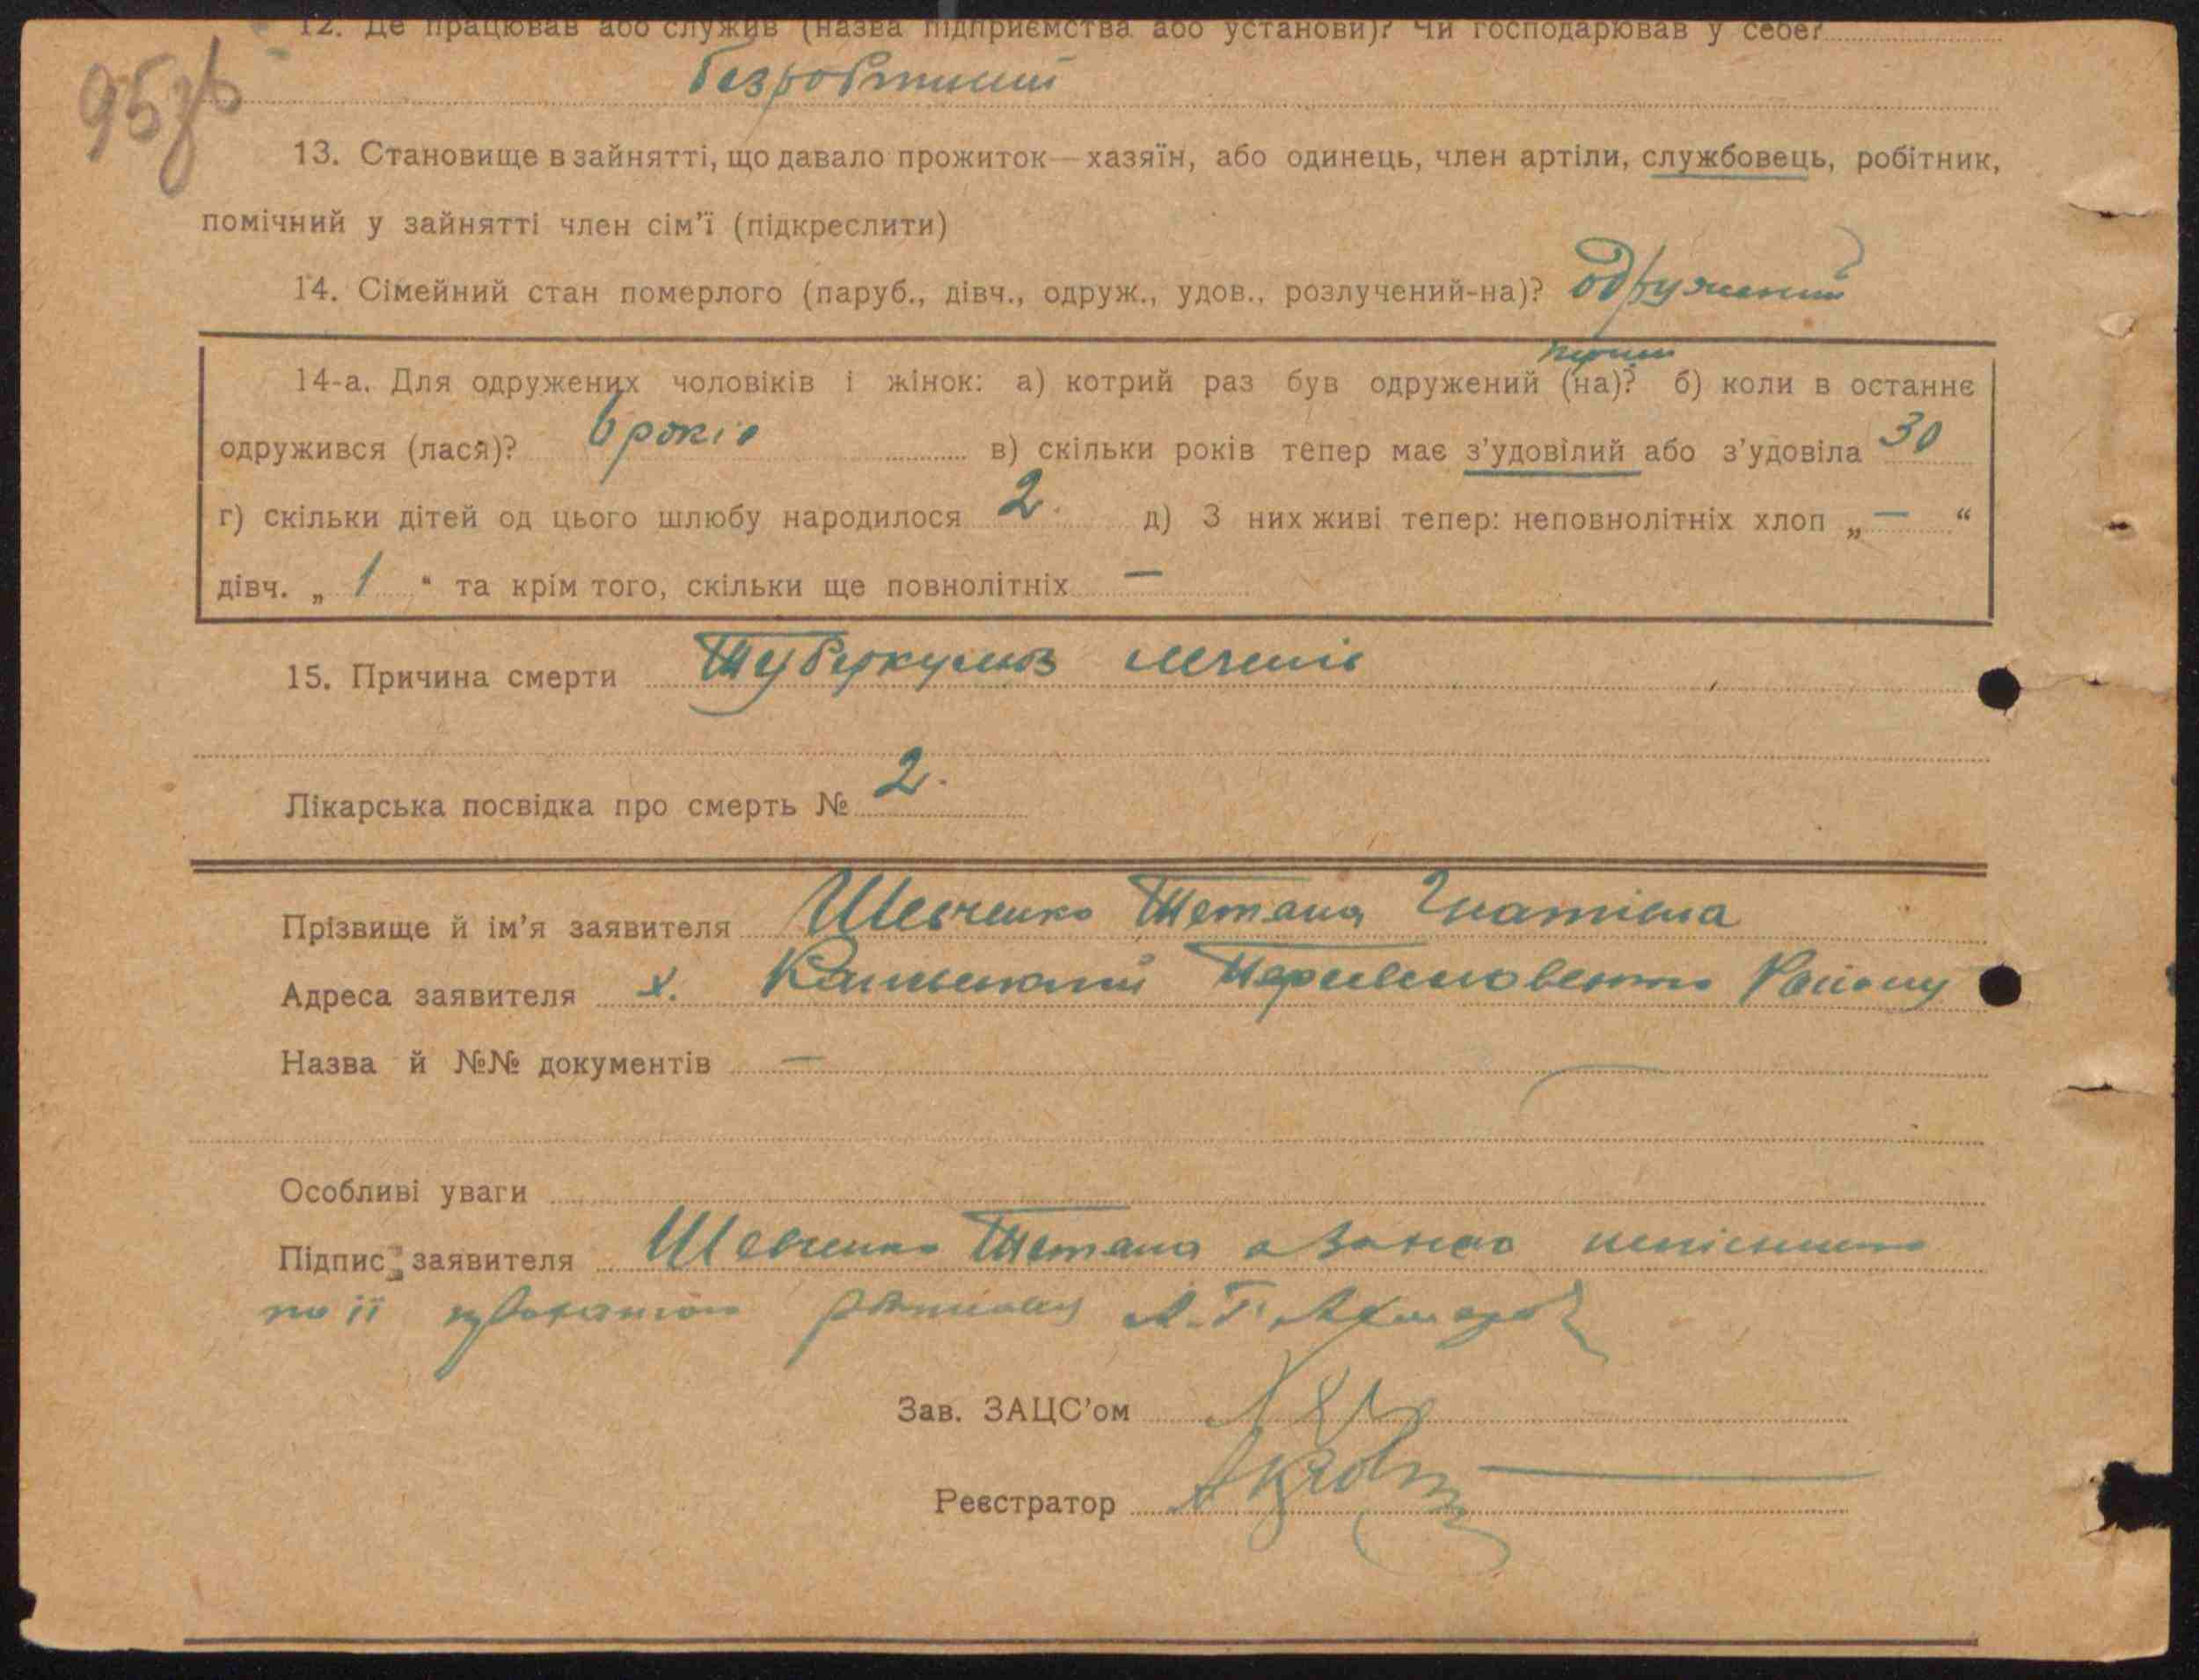 12. Де працював або служив (назва підприємства або установи)? Чи господарював у себе?
95зв
безробітний
13. Становище в зайнятті, що давало прожиток—хазяїн, або одинець, член артіли, службовець, робітник,
помічний у зайнятті член сім’ї (підкреслити)
14. Сімейний стан померлого (паруб., дівч., одруж., удов., розлучений-на)? одружений
перший
14-а. Для одружених чоловіків і жінок: а) котрий раз був одружений (на)? б) коли в останнє
одружився (лася)? 6 років в) скільки років тепер має з’удовілий або з’удовіла 30
г) скільки дітей од цього шлюбу народилося 2. д) З них живі тепер: неповнолітніх хлоп „ — “
дівч. „ 1 “ та крім того, скільки ще повнолітніх —
15. Причина смерти Туберкульоз легенів
Лікарська посвідка про смерть № 2.
Прізвище й ім’я заявителя Шевченко Тетана Гнатівна
Адреса заявителя х. Району
Назва й №№ документів —
Особливі уваги
Підпис заявителя Шевченко Тетана а за неї неписьменну
по її розписався А. Г.
Зав. ЗАЦС’ом
Реєстратор